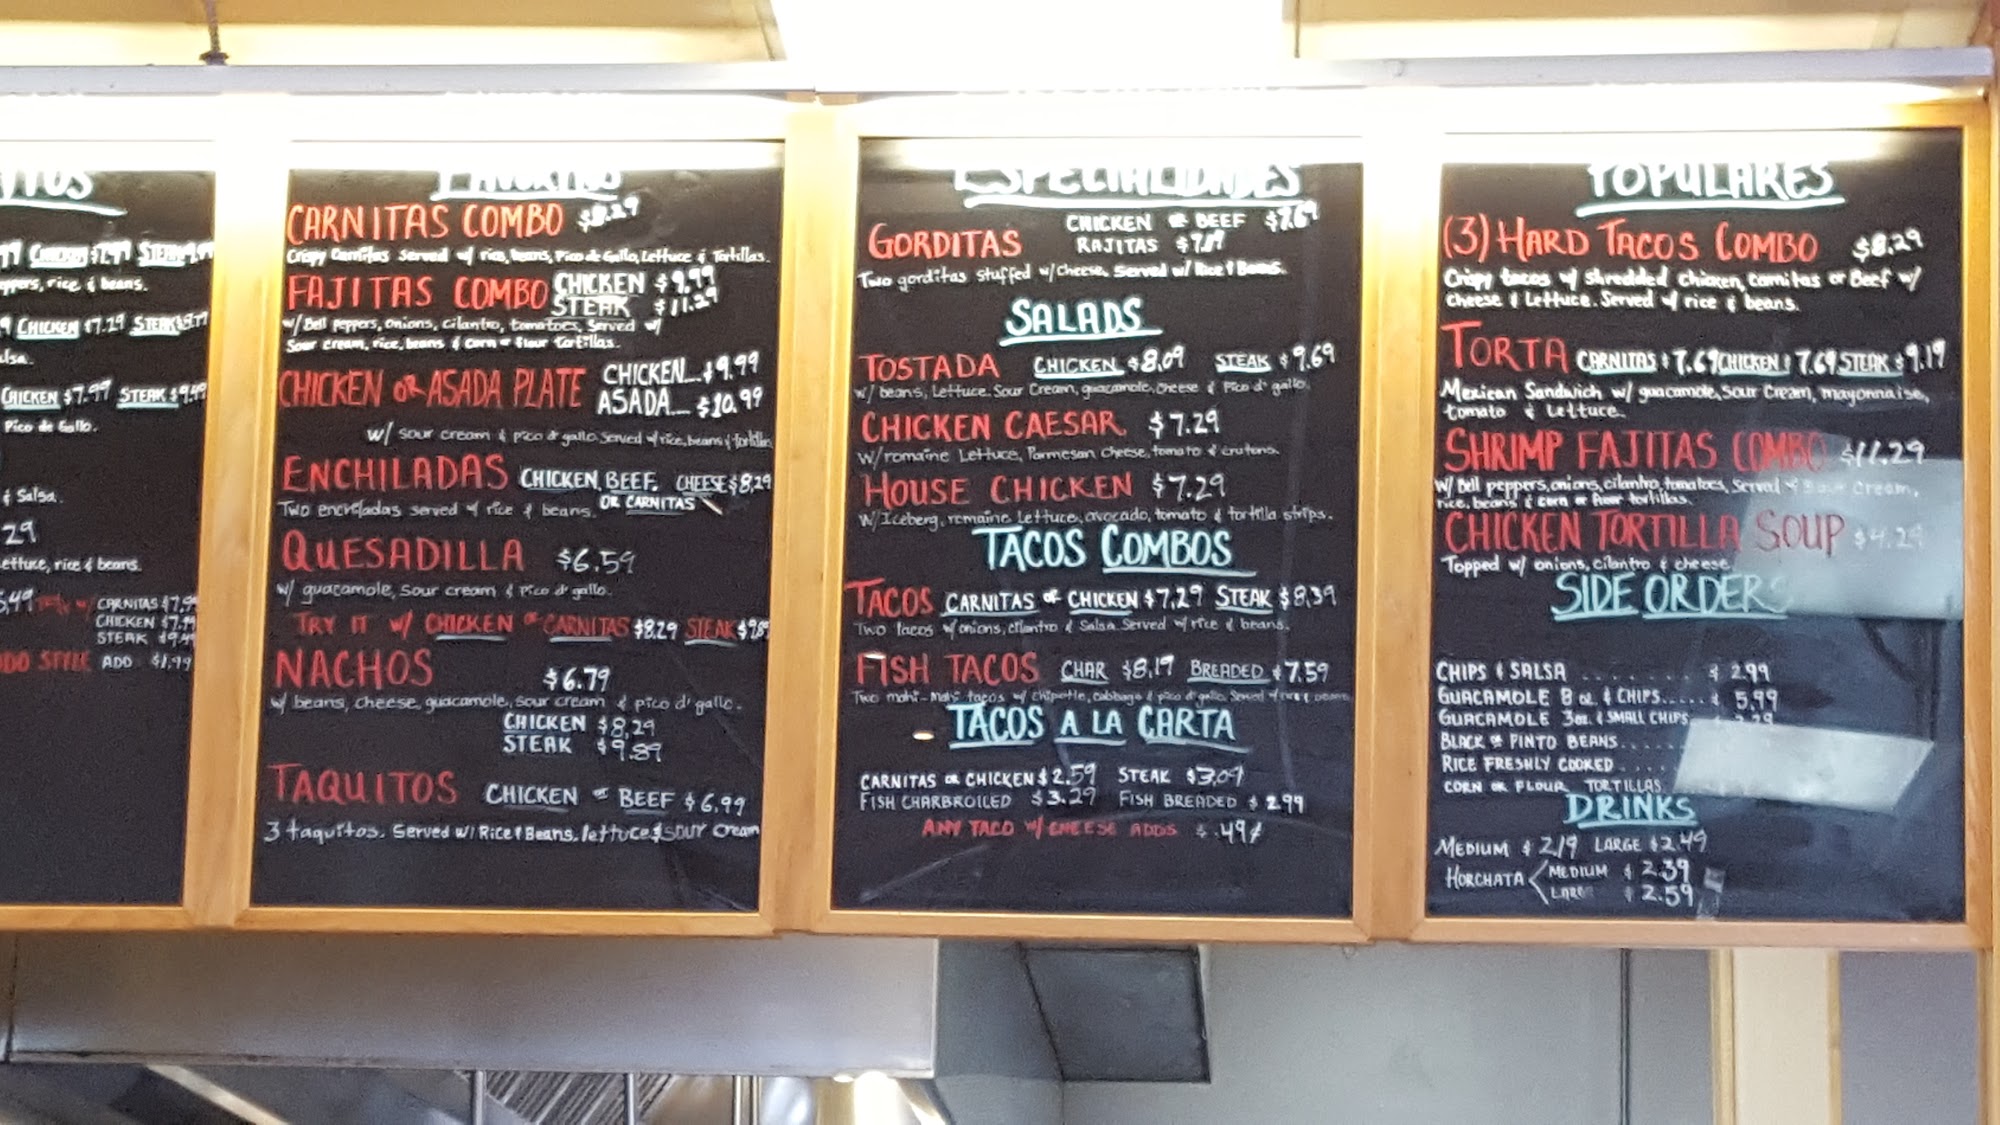 CHICKEN $7.99 STEAK
rice & beans.
CHICKEN $7.29 STEAK
CHICKEN $7.99 STEAK $9.49
Pico de Gallo.
& Salsa.
29
rice & beans.
CARNITAS $7.99
CHICKEN $7.99
STEAK $9.49
STYLE ADD $1.99
FAVORITOS
CARNITAS COMBO $8.29
Crispy Carnitas Served w/ rice, beans, Pico de Gallo, Lettuce & Tortillas.
FAJITAS COMBO CHICKEN $9.99
STEAK $11.29
w/ Bell peppers, onions, cilantro, tomatoes, Served w/
Sour cream, rice, beans & corn or flour tortillas.
CHICKEN OR ASADA PLATE CHICKEN $9.99
ASADA $10.99
w/ sour cream & pico d' gallo Served w/ rice, beans & tortillas
ENCHILADAS CHICKEN, BEEF, CHEESE $8.29
OR CARNITAS
Two enchiladas served w/ rice & beans.
QUESADILLA $6.59
w/ guacamole, sour cream & Pico d' gallo.
TRY IT w/ CHICKEN or CARNITAS $8.29 STEAK
NACHOS $6.79
w/ beans, cheese, guacamole, sour cream & pico d' gallo.
CHICKEN $8.29
STEAK $9.89
TAQUITOS CHICKEN or BEEF $6.99
3 taquitos. Served w/ Rice & Beans, lettuce & sour cream
ESPECIALIDADES
GORDITAS CHICKEN or BEEF $7.69
RAJITAS
Two gorditas stuffed w/ cheese. Served w/ Rice & Beans.
SALADS
TOSTADA CHICKEN $8.09 STEAK $9.69
w/ beans, Lettuce, Sour Cream, guacamole, cheese & Pico d' gallo.
CHICKEN CAESAR $7.29
w/ romaine Lettuce, Parmesan cheese, tomato & crutons.
HOUSE CHICKEN $7.29
w/ Iceberg, romaine Lettuce, avocado, tomato & tortilla strips.
TACOS COMBOS
TACOS CARNITAS or CHICKEN $7.29 STEAK $8.39
Two tacos w/ onions, cilantro & Salsa. Served w/ rice & beans.
FISH TACOS CHAR $8.19 BREADED $7.59
Two mahi-mahi tacos w/ chipotle, cabbage & pico d' gallo. Served w/ rice & beans
TACOS A LA CARTA
CARNITAS OR CHICKEN $2.59 STEAK $3.09
FISH CHARBROILED $3.29 FISH BREADED $2.99
ANY TACO w/ CHEESE ADDS $.49¢
POPULARES
(3) HARD TACOS COMBO $8.29
Crispy tacos w/ shredded chicken, carnitas or Beef w/
cheese & Lettuce. Served w/ rice & beans.
TORTA CARNITAS $7.69 CHICKEN $7.69 STEAK $9.19
Mexican Sandwich w/ guacamole, Sour Cream, mayonnaise,
tomato & Lettuce.
SHRIMP FAJITAS COMBO $11.29
w/ Bell peppers, onions, cilantro, tomatoes, Served w/ Sour Cream,
rice, beans & corn or flour tortillas.
CHICKEN TORTILLA SOUP $4.29
Topped w/ onions, cilantro & cheese
SIDE ORDERS
CHIPS & SALSA ........ $2.99
GUACAMOLE 8 oz. & CHIPS..... $5.99
GUACAMOLE 3oz. & SMALL CHIPS
BLACK or PINTO BEANS.....
RICE FRESHLY COOKED ....
CORN OR FLOUR TORTILLAS
DRINKS
MEDIUM $2.19 LARGE $2.49
HORCHATA MEDIUM $2.39
LARGE $2.59